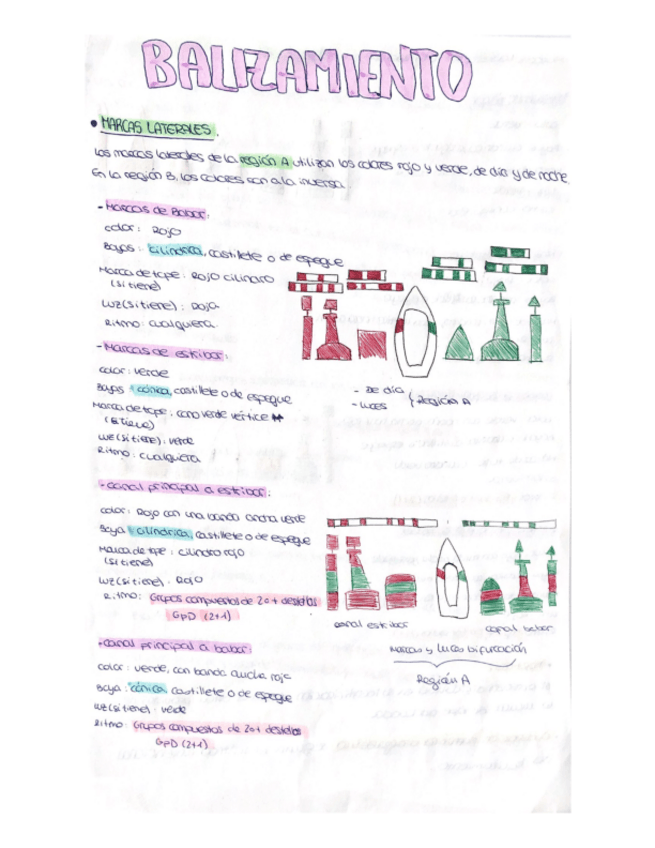 BALIZAMIENTO
• MARCAS LATERALES.
Las marcas laterales de la región A utilizan los colores rojo y verde, de día y de noche.
En la región B, los colores son a la inversa.
- Marcas de Babor:
color: Rojo
Boyas: cilíndrica, castillete o de espeque
Marca de tope: Rojo cilindro
(si tiene)
Luz (si tiene): Roja
Ritmo: cualquiera.
- Marcas de estribor:
color: verde
Boyas: cónica, castillete o de espeque
Marca de tope: cono verde vértice
(si tiene)
Luz (si tiene): verde
Ritmo: cualquiera
- De día
- Luces
Región A
- canal principal a estribor:
color: Rojo con una banda ancha verde
Boya: cilíndrica, castillete o de espeque
Marca de tope: cilindro rojo
(si tiene)
Luz (si tiene): Rojo
Ritmo: Grupos compuestos de 2o+ destellos
GpD (2+1)
canal estribor
canal babor
Marcas y luces bifurcación
Región A
- canal principal a babor:
color: verde, con banda ancha roja
Boya: cónica, castillete o de espeque
Luz (si tiene): verde
Ritmo: Grupos compuestos de 2o+ destellos
GpD (2+1)